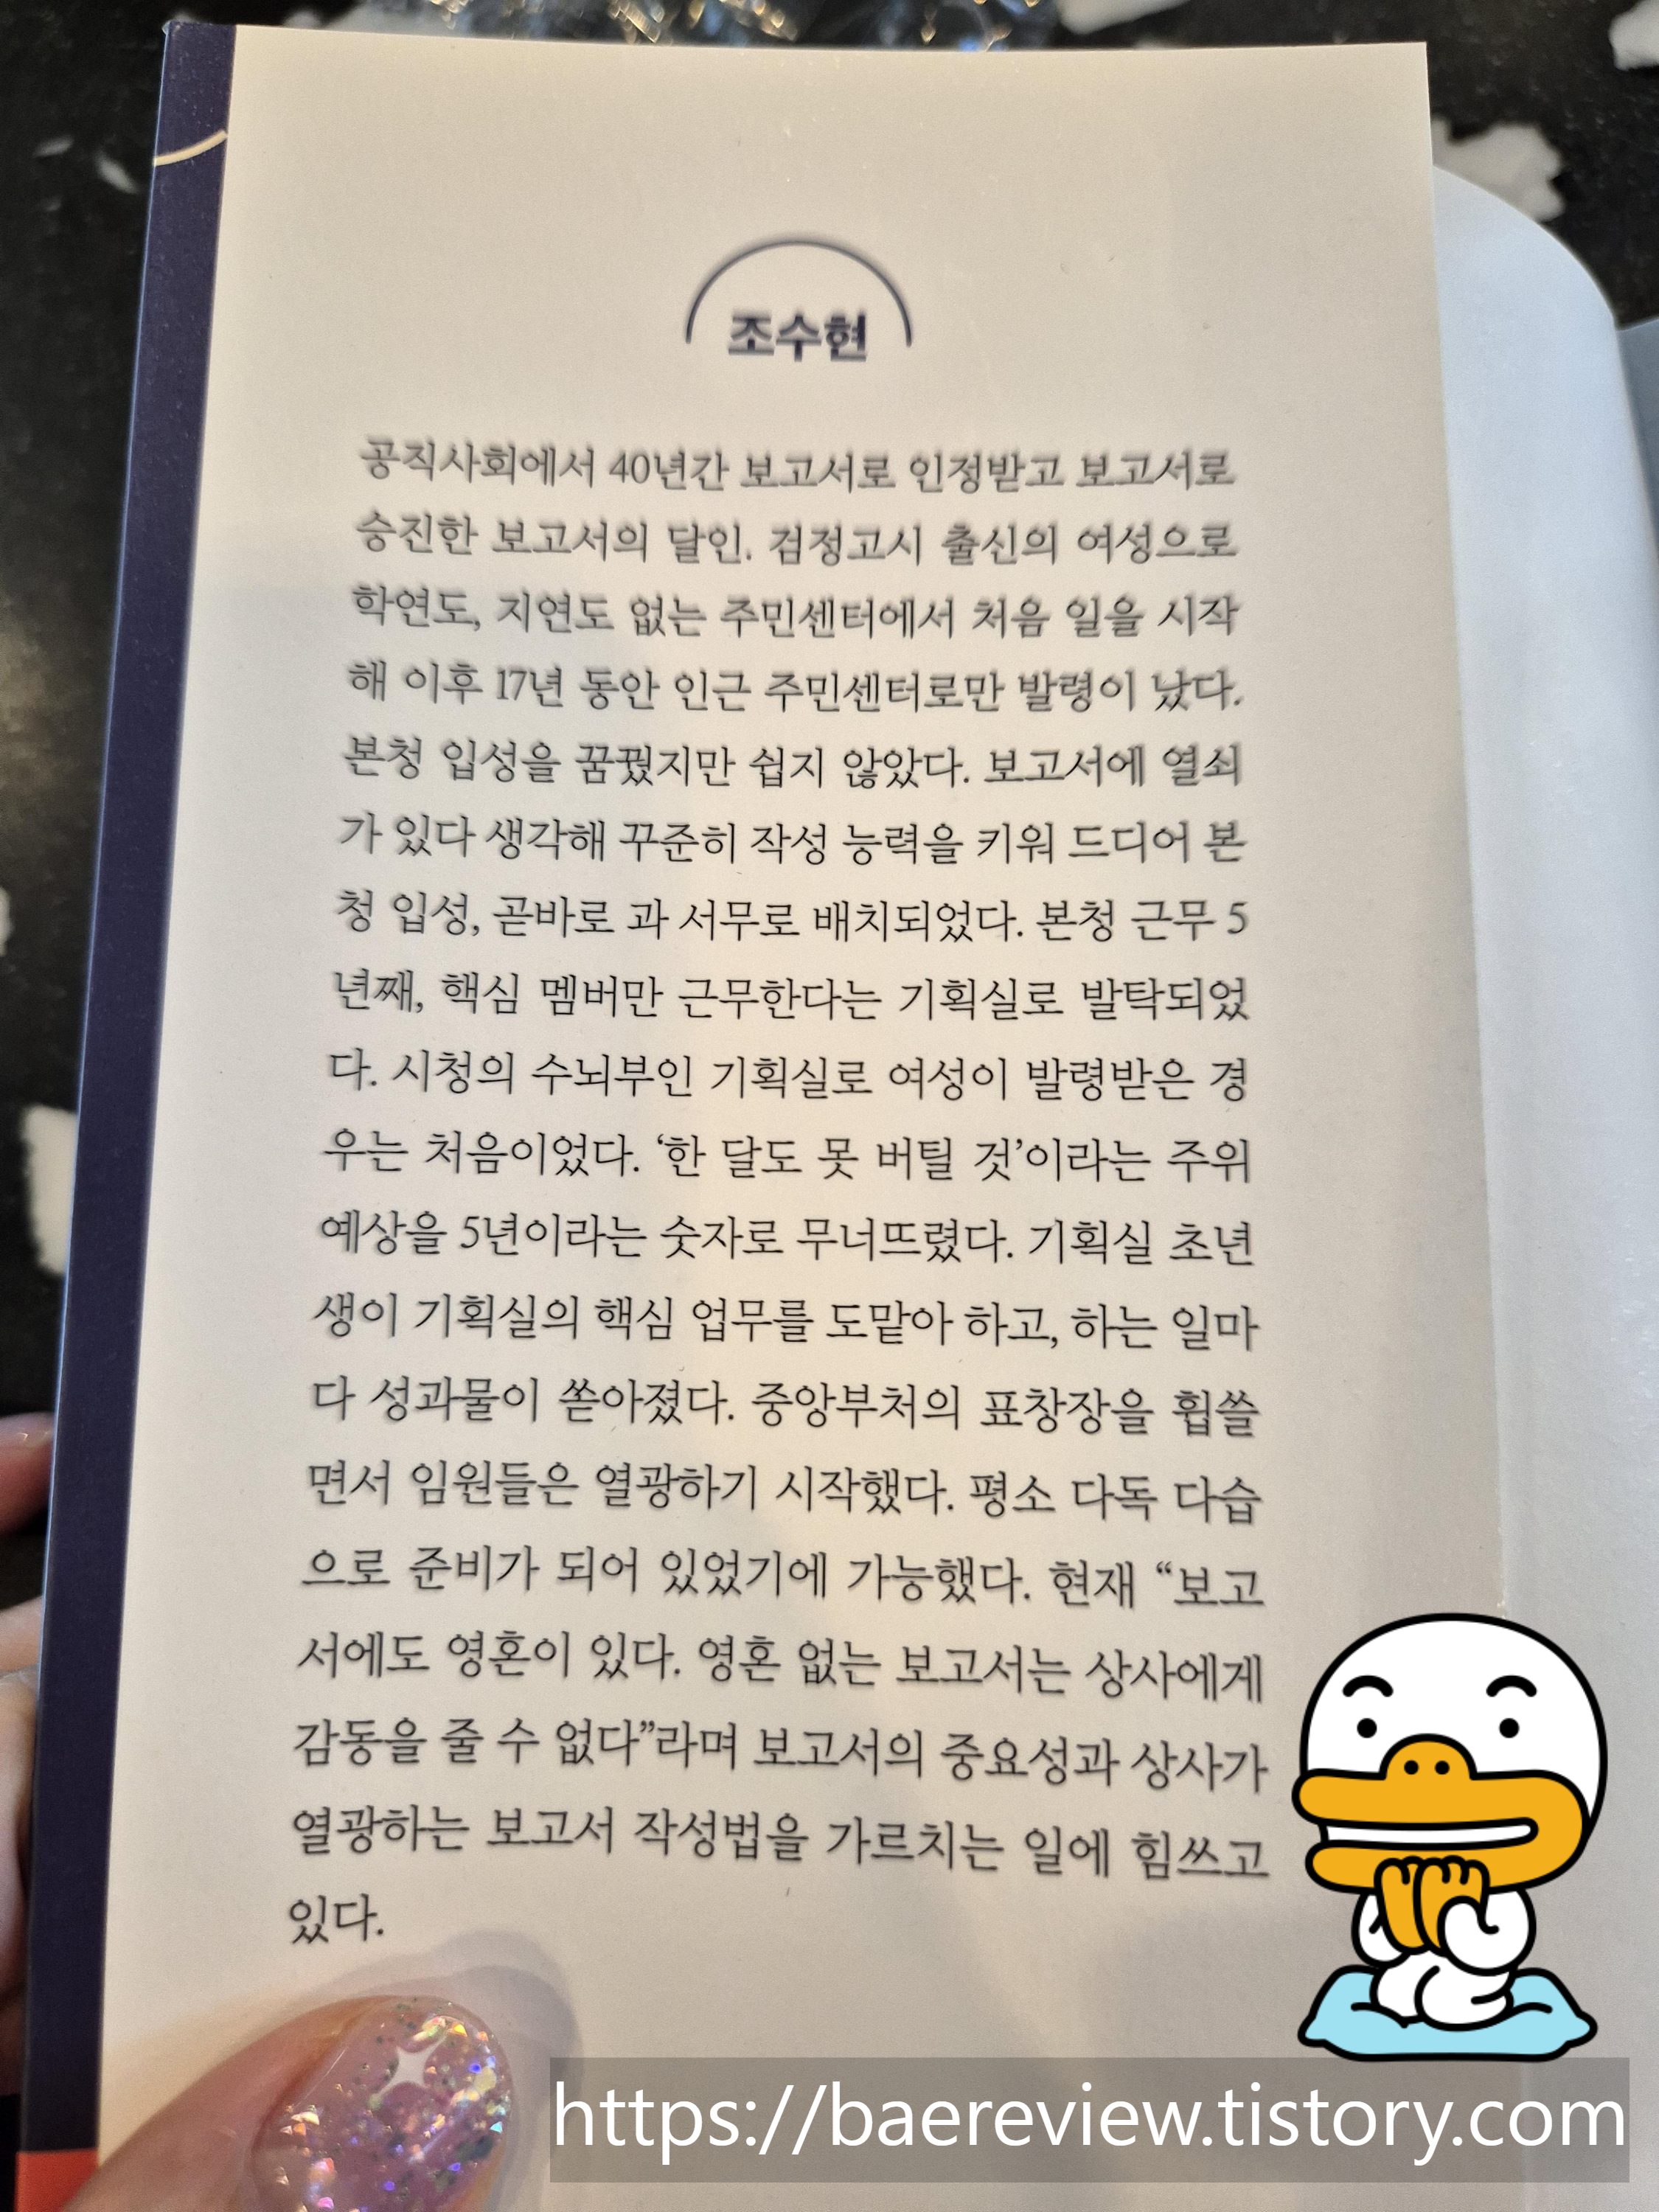 조수현
공직사회에서 40년간 보고서로 인정받고 보고서로
승진한 보고서의 달인. 검정고시 출신의 여성으로
학연도, 지연도 없는 주민센터에서 처음 일을 시작
해 이후 17년 동안 인근 주민센터로만 발령이 났다.
본청 입성을 꿈꿨지만 쉽지 않았다. 보고서에 열쇠
가 있다 생각해 꾸준히 작성 능력을 키워 드디어 본
청 입성, 곧바로 과 서무로 배치되었다. 본청 근무 5
년째, 핵심 멤버만 근무한다는 기획실로 발탁되었
다. 시청의 수뇌부인 기획실로 여성이 발령받은 경
우는 처음이었다. ‘한 달도 못 버틸 것’이라는 주위
예상을 5년이라는 숫자로 무너뜨렸다. 기획실 초년
생이 기획실의 핵심 업무를 도맡아 하고, 하는 일마
다 성과물이 쏟아졌다. 중앙부처의 표창장을 휩쓸
면서 임원들은 열광하기 시작했다. 평소 다독 다습
으로 준비가 되어 있었기에 가능했다. 현재 “보고
서에도 영혼이 있다. 영혼 없는 보고서는 상사에게
감동을 줄 수 없다”라며 보고서의 중요성과 상사가
열광하는 보고서 작성법을 가르치는 일에 힘쓰고
있다.
https://baereview.tistory.com